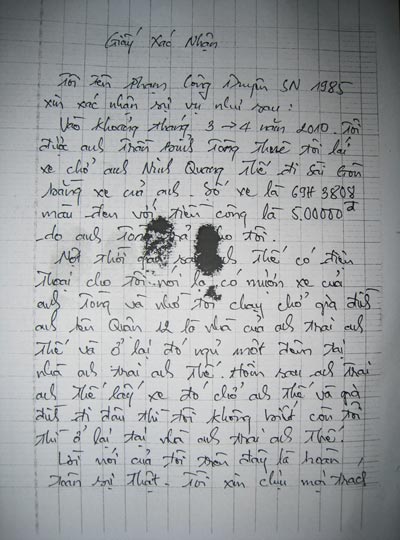 Giấy Xác Nhận
Tôi tên Phạm Công Duyên SN 1985
xin xác nhận sự vụ như sau:
Vào khoảng tháng 3 → 4 năm 2010. Tôi
được anh Trần Tòng thuê tôi lái
xe chở anh Ninh Quang Thế đi Sài Gòn
bằng xe của anh. Số xe là 69H 3808
màu đen với tiền công là 5.00000đ
do anh Tòng trả cho tôi.
Một thời gian sau anh Thế có điện
thoại cho tôi nói là có mướn xe của
anh Tòng và nhờ tôi chạy chở gia đình
anh lên Quận 12 là nhà của anh trai anh
Thế và ở lại đó ngủ một đêm tại
nhà anh trai anh Thế. Hôm sau anh trai
anh Thế lấy xe đó chở anh Thế và gia
đình đi đâu thì tôi không biết còn tôi
thì ở lại tại nhà anh trai anh Thế.
Lời nói của tôi trên đây là hoàn
toàn sự thật. Tôi xin chịu mọi trách